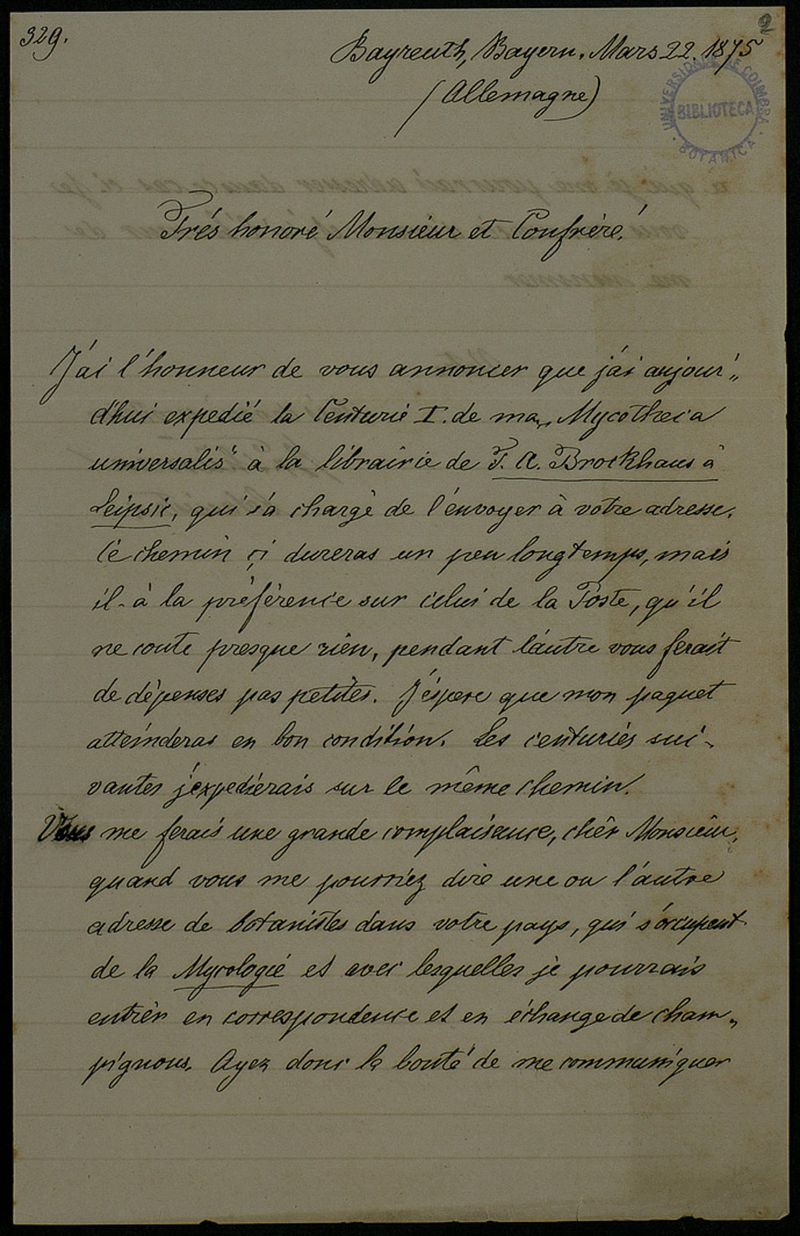 329.
2
Bayreuth, Bayern. Mars 22. 1875
(Allemagne)
UNIVERSIDADE DE COIMBRA
BIBLIOTECA
BOTANICA
Trés honoré Monsieur et Confrère!
J'ai l'honneur de vous annoncer que j'ai aujour'„
d'hui expedié la Centurie I. de ma „Mycotheca
universalis" à la librairie de F. A. Brockhaus à
Leipsic, qui s'a chargé de l'envoyer à votre adresse.
Cé chemin çi dureras un peu longtemps, mais
il-à la préférence sur celui de la Poste, qu'il
ne coute presque rien, pendant l'autre vous ferait
de dépenses pas petites. J'éspere que mon paquet
atteinderas en bon condition. Les centuriés sui-
vantes j'expedierais sur le même chemin.
Vous me ferais une grande complaisance, chér Monsieur,
quand vous me pourriez dire une ou l'autre
adresse de botanistes dans votre pays, qui s'occupent
de la Mycologié et avec lesquelles je pourrais
entrér en correspondence et en échange de cham„
pignons. Ayez donc la bonté de me communiquer